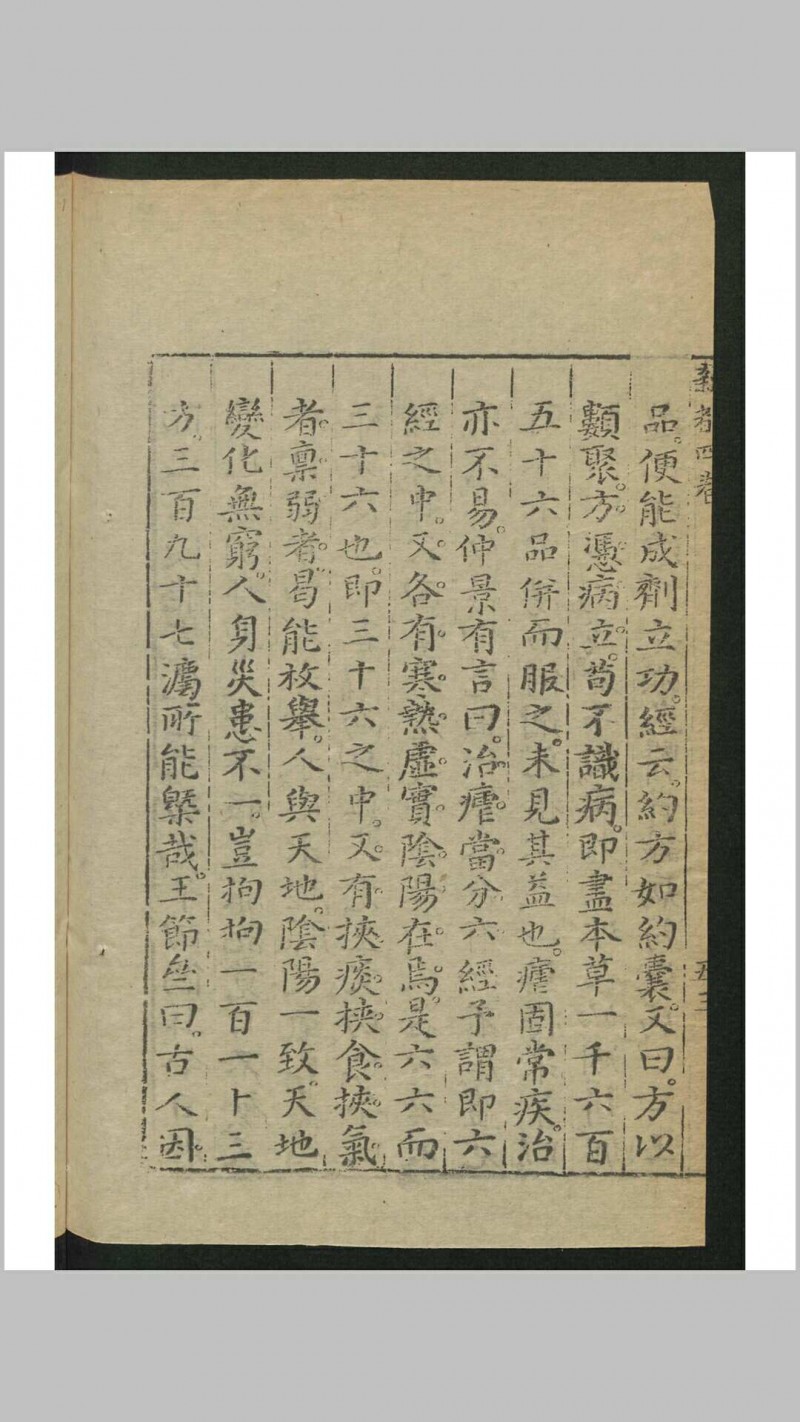 四卷
品便能成劑立功。經云。約方如約囊。又曰。方以
類聚。方憑病立。苟不識病。即盡本草一千六百
五十六品併而服之。未見其益也。瘧固常疾。治
亦不易。仲景有言曰。治瘧當分六經予謂即六
經之中。又各有寒熱虛實陰陽在焉。是六六而
三十六也。即三十六之中。又有挾痰挾食挾氣
者。稟弱者。曷能枚舉。人與天地。陰陽一致。天地
變化無窮。人身災患不一。豈拘拘一百一十三
方。三百九十七瀳所能槩哉。王節㙓曰。古人因